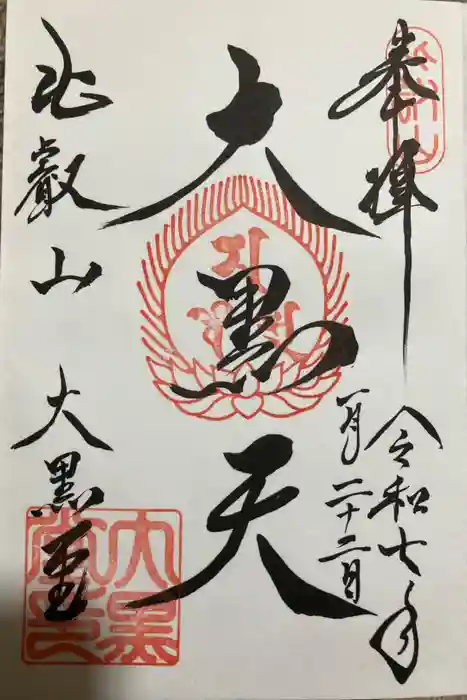 奉拝
令和七年
一月二十二日
大黒天
比叡山
大黒堂
大黒堂印